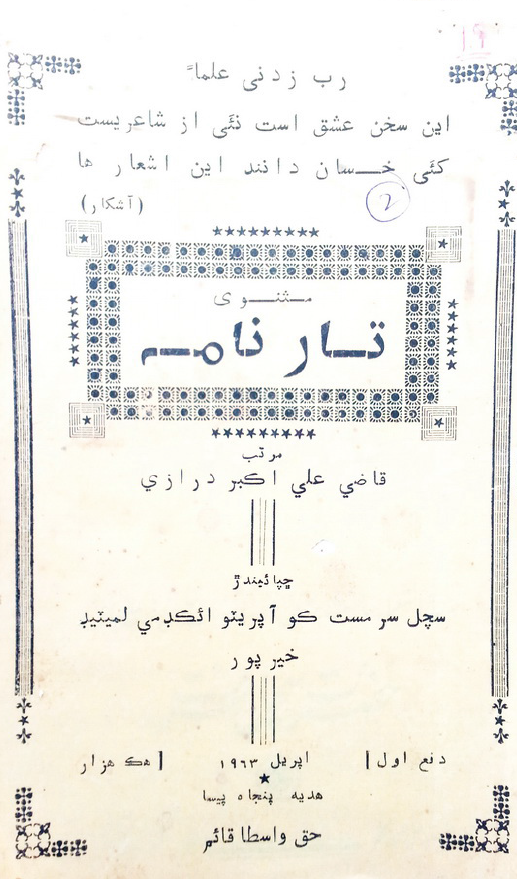 ۱۹
رب زدني علماً
این سخن عشق است نئی از شاعریست
کئی خسان دانند این اشعار ها
(آشکار)
2
مثنوي
تار نامه
مرتب
قاضي علي اڪبر درازي
ڇپائيندڙ
سچل سرمست ڪو آپريٽو اڪئڊمي لميٽيڊ
خيرپور
دفع اول] اپريل ۱۹٦۳ [هڪ هزار
هديه پنجاه پيسا
حق واسطا قائم